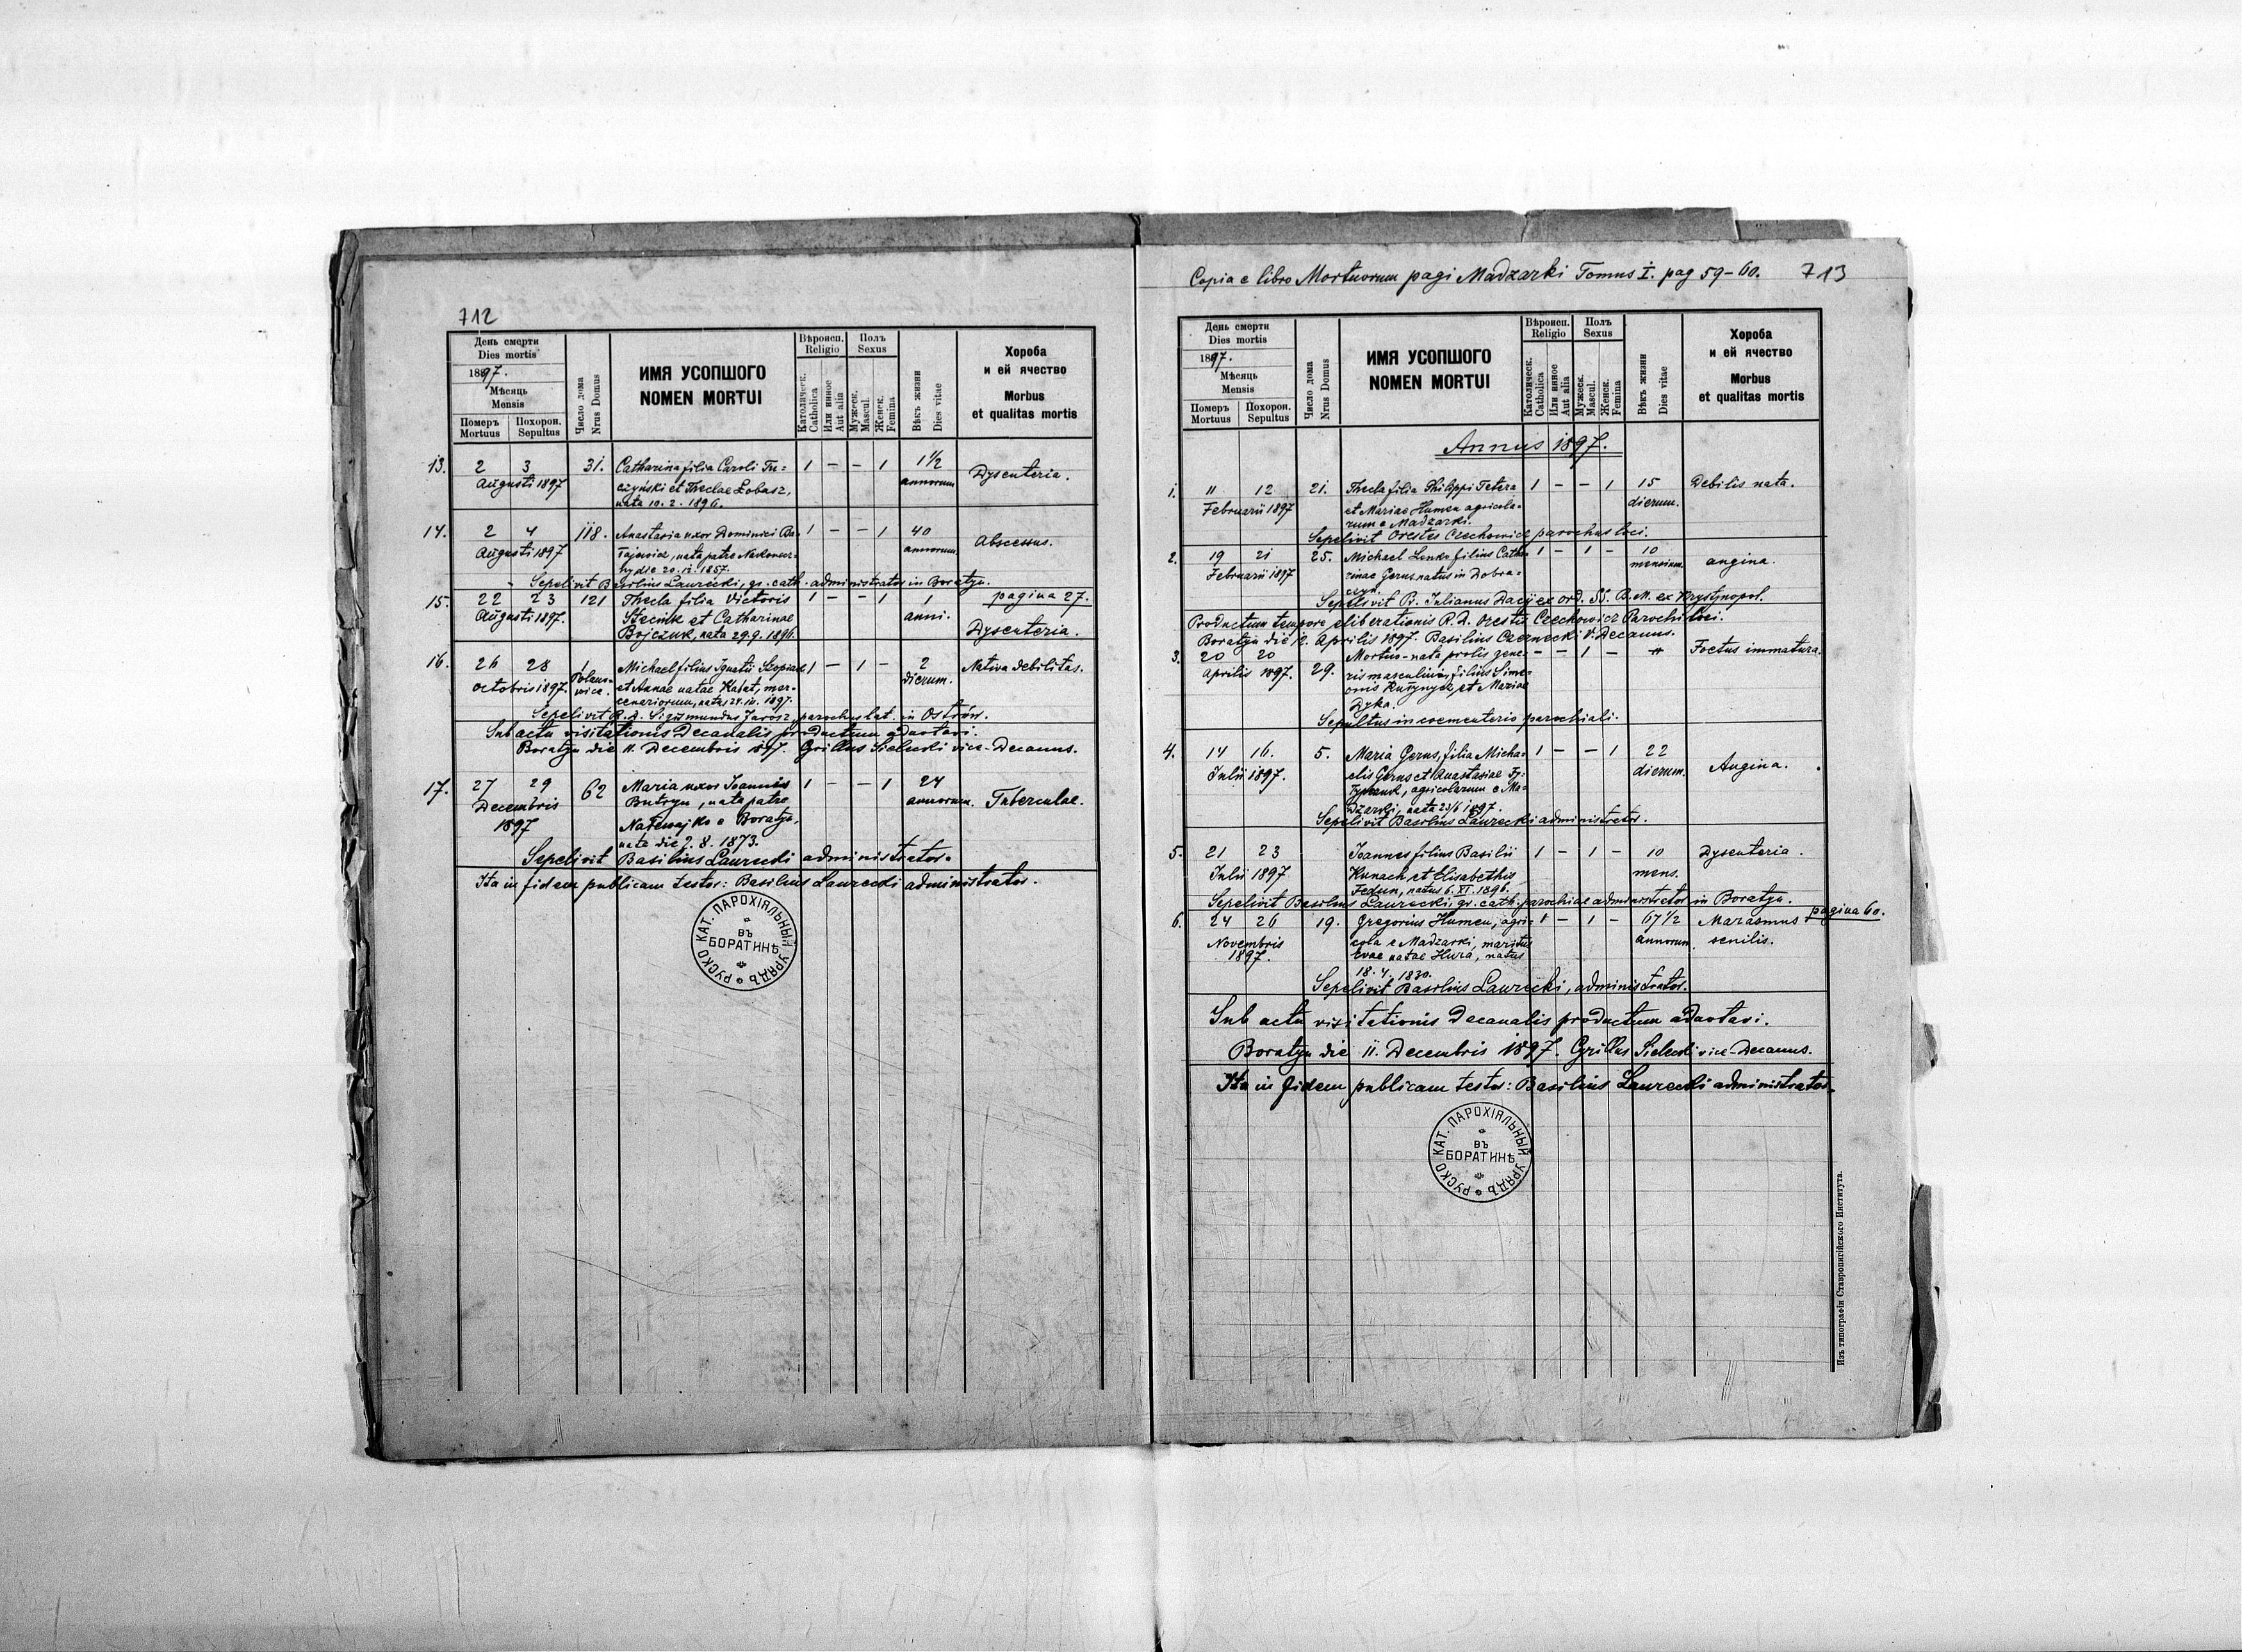 712
День смерти
Dies mortis
1897.
Мѣсяць
Mensis
Померъ
Mortuus
Похорон.
Sepultus
Число дома
Nrus Domus
ИМЯ УСОПШОГО
NOMEN MORTUI
Вѣроисп.
Religio
Католическ.
Catholica
Или инное
Aut alia
Полъ
Sexus
Мужеск.
Mascul.
Женск.
Femina
Вѣкъ жизни
Dies vitae
Хороба
и ей ячество
Morbus
et qualitas mortis
13. 2 3 31. Catharina filia Caroli Tu= 1 – – 1 1½ Dysenteria.
Augusti 1897 czyński et Theclae Łobasz, annorum
nata 10. 2. 1896.
14. 2 4 118. Anastasia uxor Dominici Ba= 1 – – 1 40 Abscessus.
Augusti 1897 nata patre annorum
hy die 20. 12. 1857.
Sepelivit Basilius Laurecki, gr. cath. administrator in Boratyn.
15. 22 23 121 Thecla filia Victoris 1 – – 1 1 pagina 27.
Augusti 1897. Stecink et Catharinae anni. Dysenteria.
Bojczuk, nata 29. 9. 1896.
16. 26 28 1 Michael filius Ignatii 1 – 1 – 2 Nativa debilitas.
Octobris 1897. et Annae natae mer= dierum.
cenariorum, natus 24. 10. 1897.
Sepelivit R. d. Sigismundus Jarosz, parochus lat. in Ostrów.
Sub actu visitationis Decanalis productum adnotavi.
Boratyn die 11. Decembris 1897. Cyrillus Sielecki vice-Decanus.
17. 27 29 62 Maria uxor Joannis 1 – – 1 24 Tuberculae.
Decembris Butryn, nata patre annorum.
1897 e Boratyn,
nata die 2. 8. 1873.
Sepelivit Basilius Laurecki administrator.
Ita in fidem publicam testor: Basilius Laurecki administrator.
РУСКО КАТ. ПАРОХІЯЛЬНЫЙ УРЯДЪ
ВЪ
БОРАТИНѢ
Copia e libro Mortuorum pagi Madzarki Tomus I. pag 59–60. 713
День смерти
Dies mortis
1897.
Мѣсяць
Mensis
Померъ
Mortuus
Похорон.
Sepultus
Число дома
Nrus Domus
ИМЯ УСОПШОГО
NOMEN MORTUI
Вѣроисп.
Religio
Католическ.
Catholica
Или инное
Aut alia
Полъ
Sexus
Мужеск.
Mascul.
Женск.
Femina
Вѣкъ жизни
Dies vitae
Хороба
и ей ячество
Morbus
et qualitas mortis
Annus 1897.
1. 11 12 21. Thecla filia Philippi Tetera 1 – – 1 15 Debilis nata.
Februarii 1897 et Mariae Humen agricola= dierum.
rum e Madzarki.
Sepelivit Orestes Czechowicz parochus loci.
2. 19 21 25. Michael Lenko filius Catha= 1 – 1 – 10 angina.
Februarii 1897 rinae Gerus natus in Dobra= mensium.
czyn.
Sepelivit P. Julianus Dacij ex ord. SS. B. M. ex Krystynopol.
Productum tempore eliberationis R. D. Orestis Czechowicz Parochi loci.
Boratyn die 12. Aprilis 1897. Basilius Czernecki V. Decanus.
3. 20 20 29. Mortuo-nata prolis gene= – – 1 – Foetus immatura.
Aprilis 1897. ris masculini, filius Sime=
onis et Mariae
Dyka.
Sepultus in coementerio parochiali.
4. 14 16. 5. Maria Gerus, filia Micha= 1 – – 1 22 Angina.
Julii 1897. elis Gerus et Anastasiae dierum.
agricolarum e Ma=
dzarki, nata 23/6 1897.
Sepelivit Basilius Laurecki administrator.
5. 21 23 Joannes filius Basilii 1 – 1 – 10 Dysenteria.
Julii 1897 Kunach et Elisabethis mens.
Fedun, natus 6. XI. 1896.
Sepelivit Basilius Laurecki, gr. cath. parochiae administrator in Boratyn.
6. 24 26 19. Gregorius Humen, agri= 1 – 1 – 67½ Marasmus pagina 60.
Novembris cola e Madzarki, maritus annorum senilis.
1897. Evae natae Hura, natus
18. 4. 1830.
Sepelivit Basilius Laurecki, administrator.
Sub actu visitationis Decanalis productum adnotavi.
Boratyn die 11. Decembris 1897. Cyrillus Sielecki vice-Decanus.
Ita in fidem publicam testor: Basilius Laurecki administrator.
РУСКО КАТ. ПАРОХІЯЛЬНЫЙ УРЯДЪ
ВЪ
БОРАТИНѢ
Изъ типографіи Ставропигійского Института.